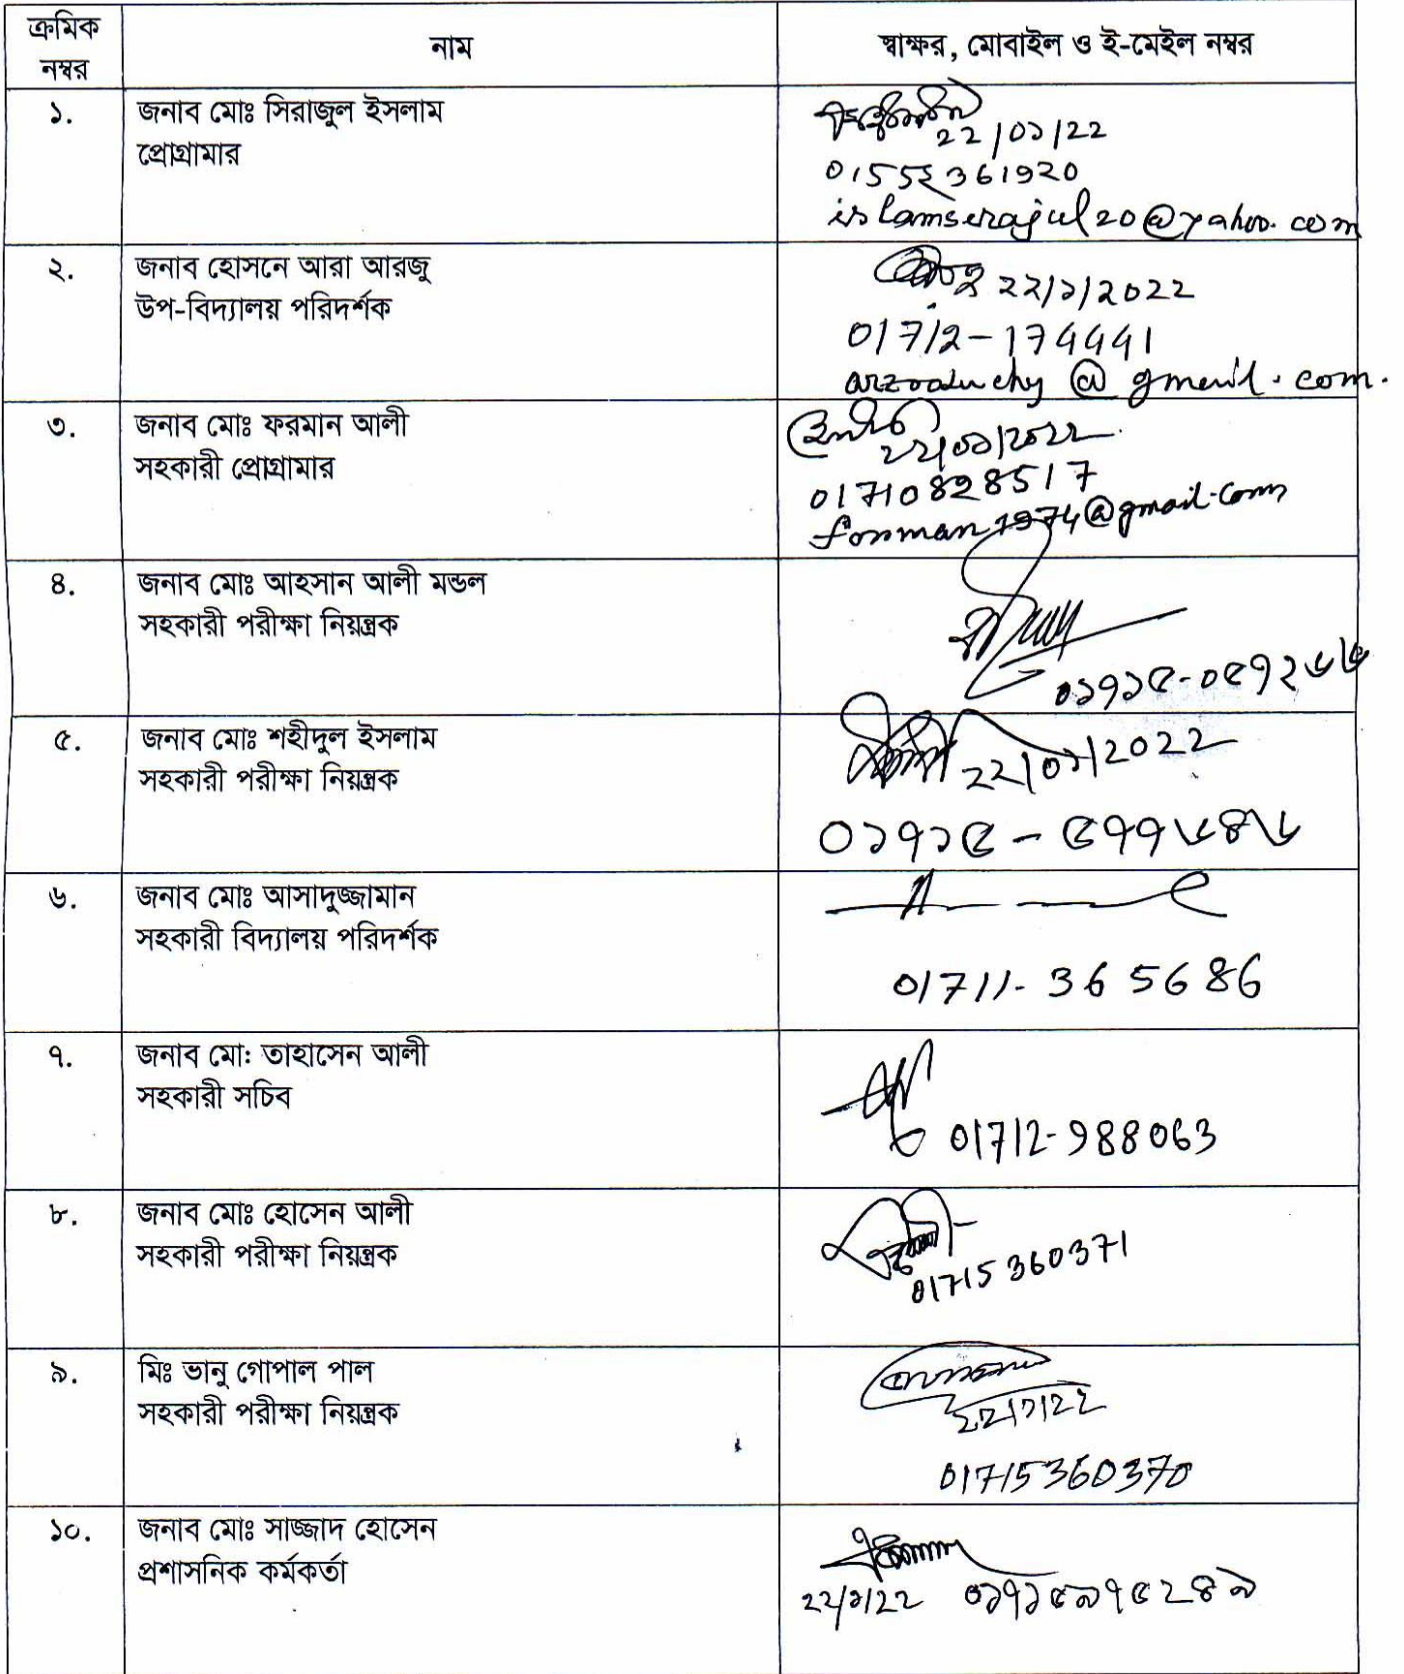 ক্রমিক নম্বর
নাম
স্বাক্ষর, মোবাইল ও ই-মেইল নম্বর
১.
জনাব মোঃ সিরাজুল ইসলাম
প্রোগ্রামার
22/01/22
01552361920
islamserajul20@yahoo.com
২.
জনাব হোসনে আরা আরজু
উপ-বিদ্যালয় পরিদর্শক
২২/১/2022
01712-174441
@gmail.com.
৩.
জনাব মোঃ ফরমান আলী
সহকারী প্রোগ্রামার
২২/০১/২০২২
01710828517
forman1974@gmail.com
৪.
জনাব মোঃ আহসান আলী মন্ডল
সহকারী পরীক্ষা নিয়ন্ত্রক
০১৭১৫-০৫৭২৬৬
৫.
জনাব মোঃ শহীদুল ইসলাম
সহকারী পরীক্ষা নিয়ন্ত্রক
22/০১/2022
০১৭১৫-৫৭৭৬৪৬
৬.
জনাব মোঃ আসাদুজ্জামান
সহকারী বিদ্যালয় পরিদর্শক
01711-365686
৭.
জনাব মো: তাহাসেন আলী
সহকারী সচিব
01712-988063
৮.
জনাব মোঃ হোসেন আলী
সহকারী পরীক্ষা নিয়ন্ত্রক
01715360371
৯.
মিঃ ভানু গোপাল পাল
সহকারী পরীক্ষা নিয়ন্ত্রক
22/১/22
01715360370
১০.
জনাব মোঃ সাজ্জাদ হোসেন
প্রশাসনিক কর্মকর্তা
২২/১/২২ ০১৭১৫৯৭৫২৪৯